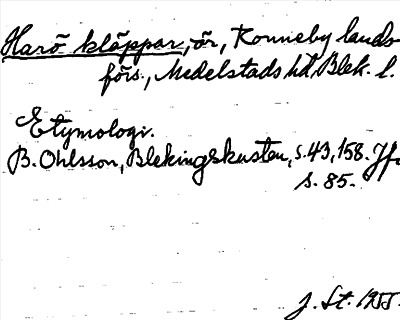 Harö kläppar, ör, Ronneby lands-
förs., Medelstads hd, Blek. l.
Etymologi.
B. Ohlsson, Blekingskusten, s. 43, 158. Jfr
s. 85.
J. St. 1955.